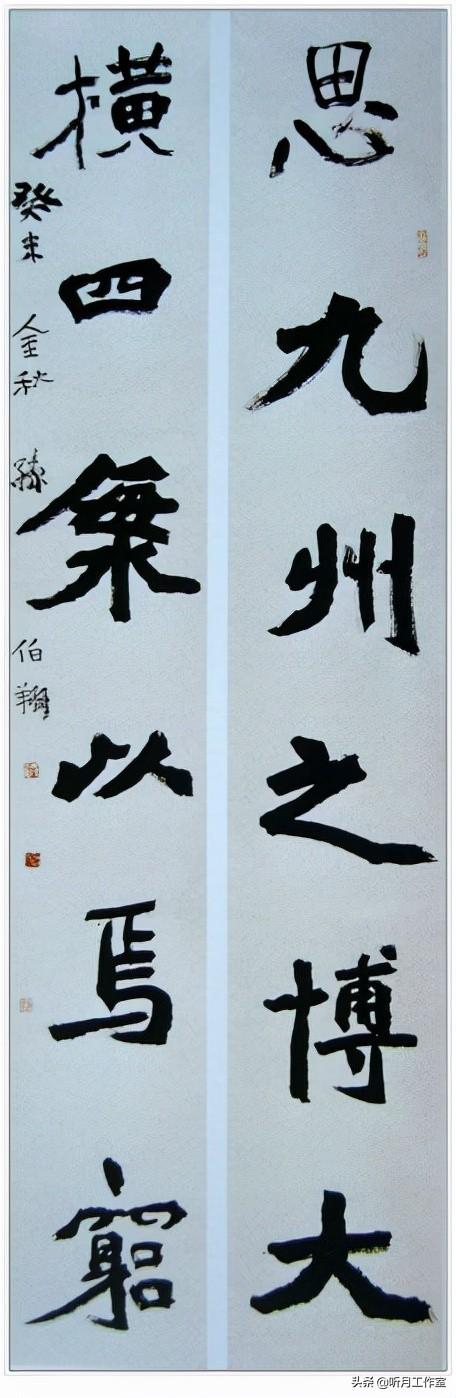 思九州之博大
橫四海以焉窮
癸未 金秋 孫伯翔
头条 @听月工作室